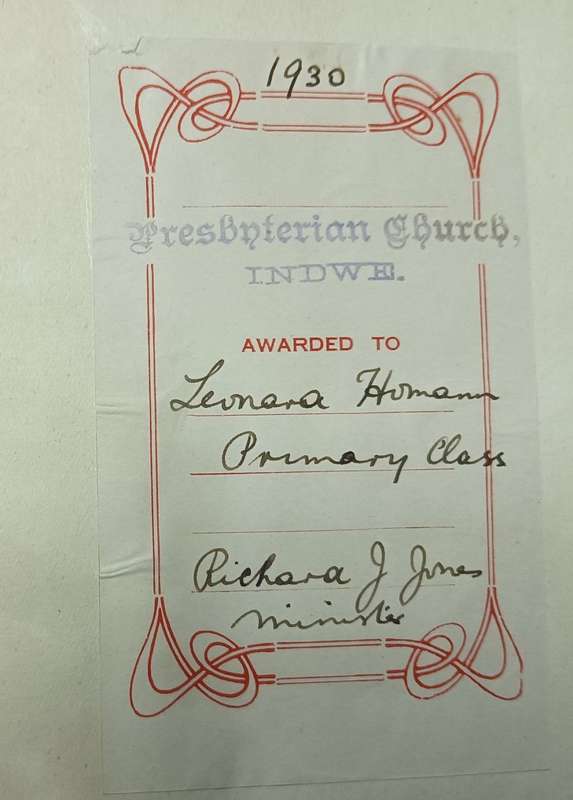 1930
Presbyterian Church,
INDWE.
AWARDED TO
Leonara Homann
Primary Class
Richard J Jones
Minister